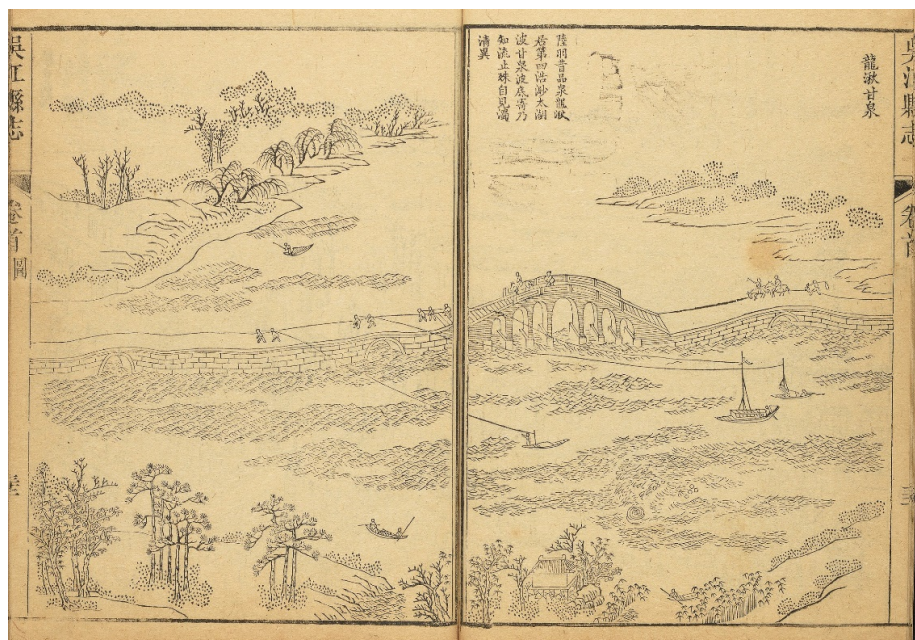 吳江縣志
卷首
龍湫甘泉
陸羽昔品泉龍湫
居第四浩渺太湖
波甘泉波底寄乃
知流止殊自見濁
清異
吳江縣志
卷首
圖